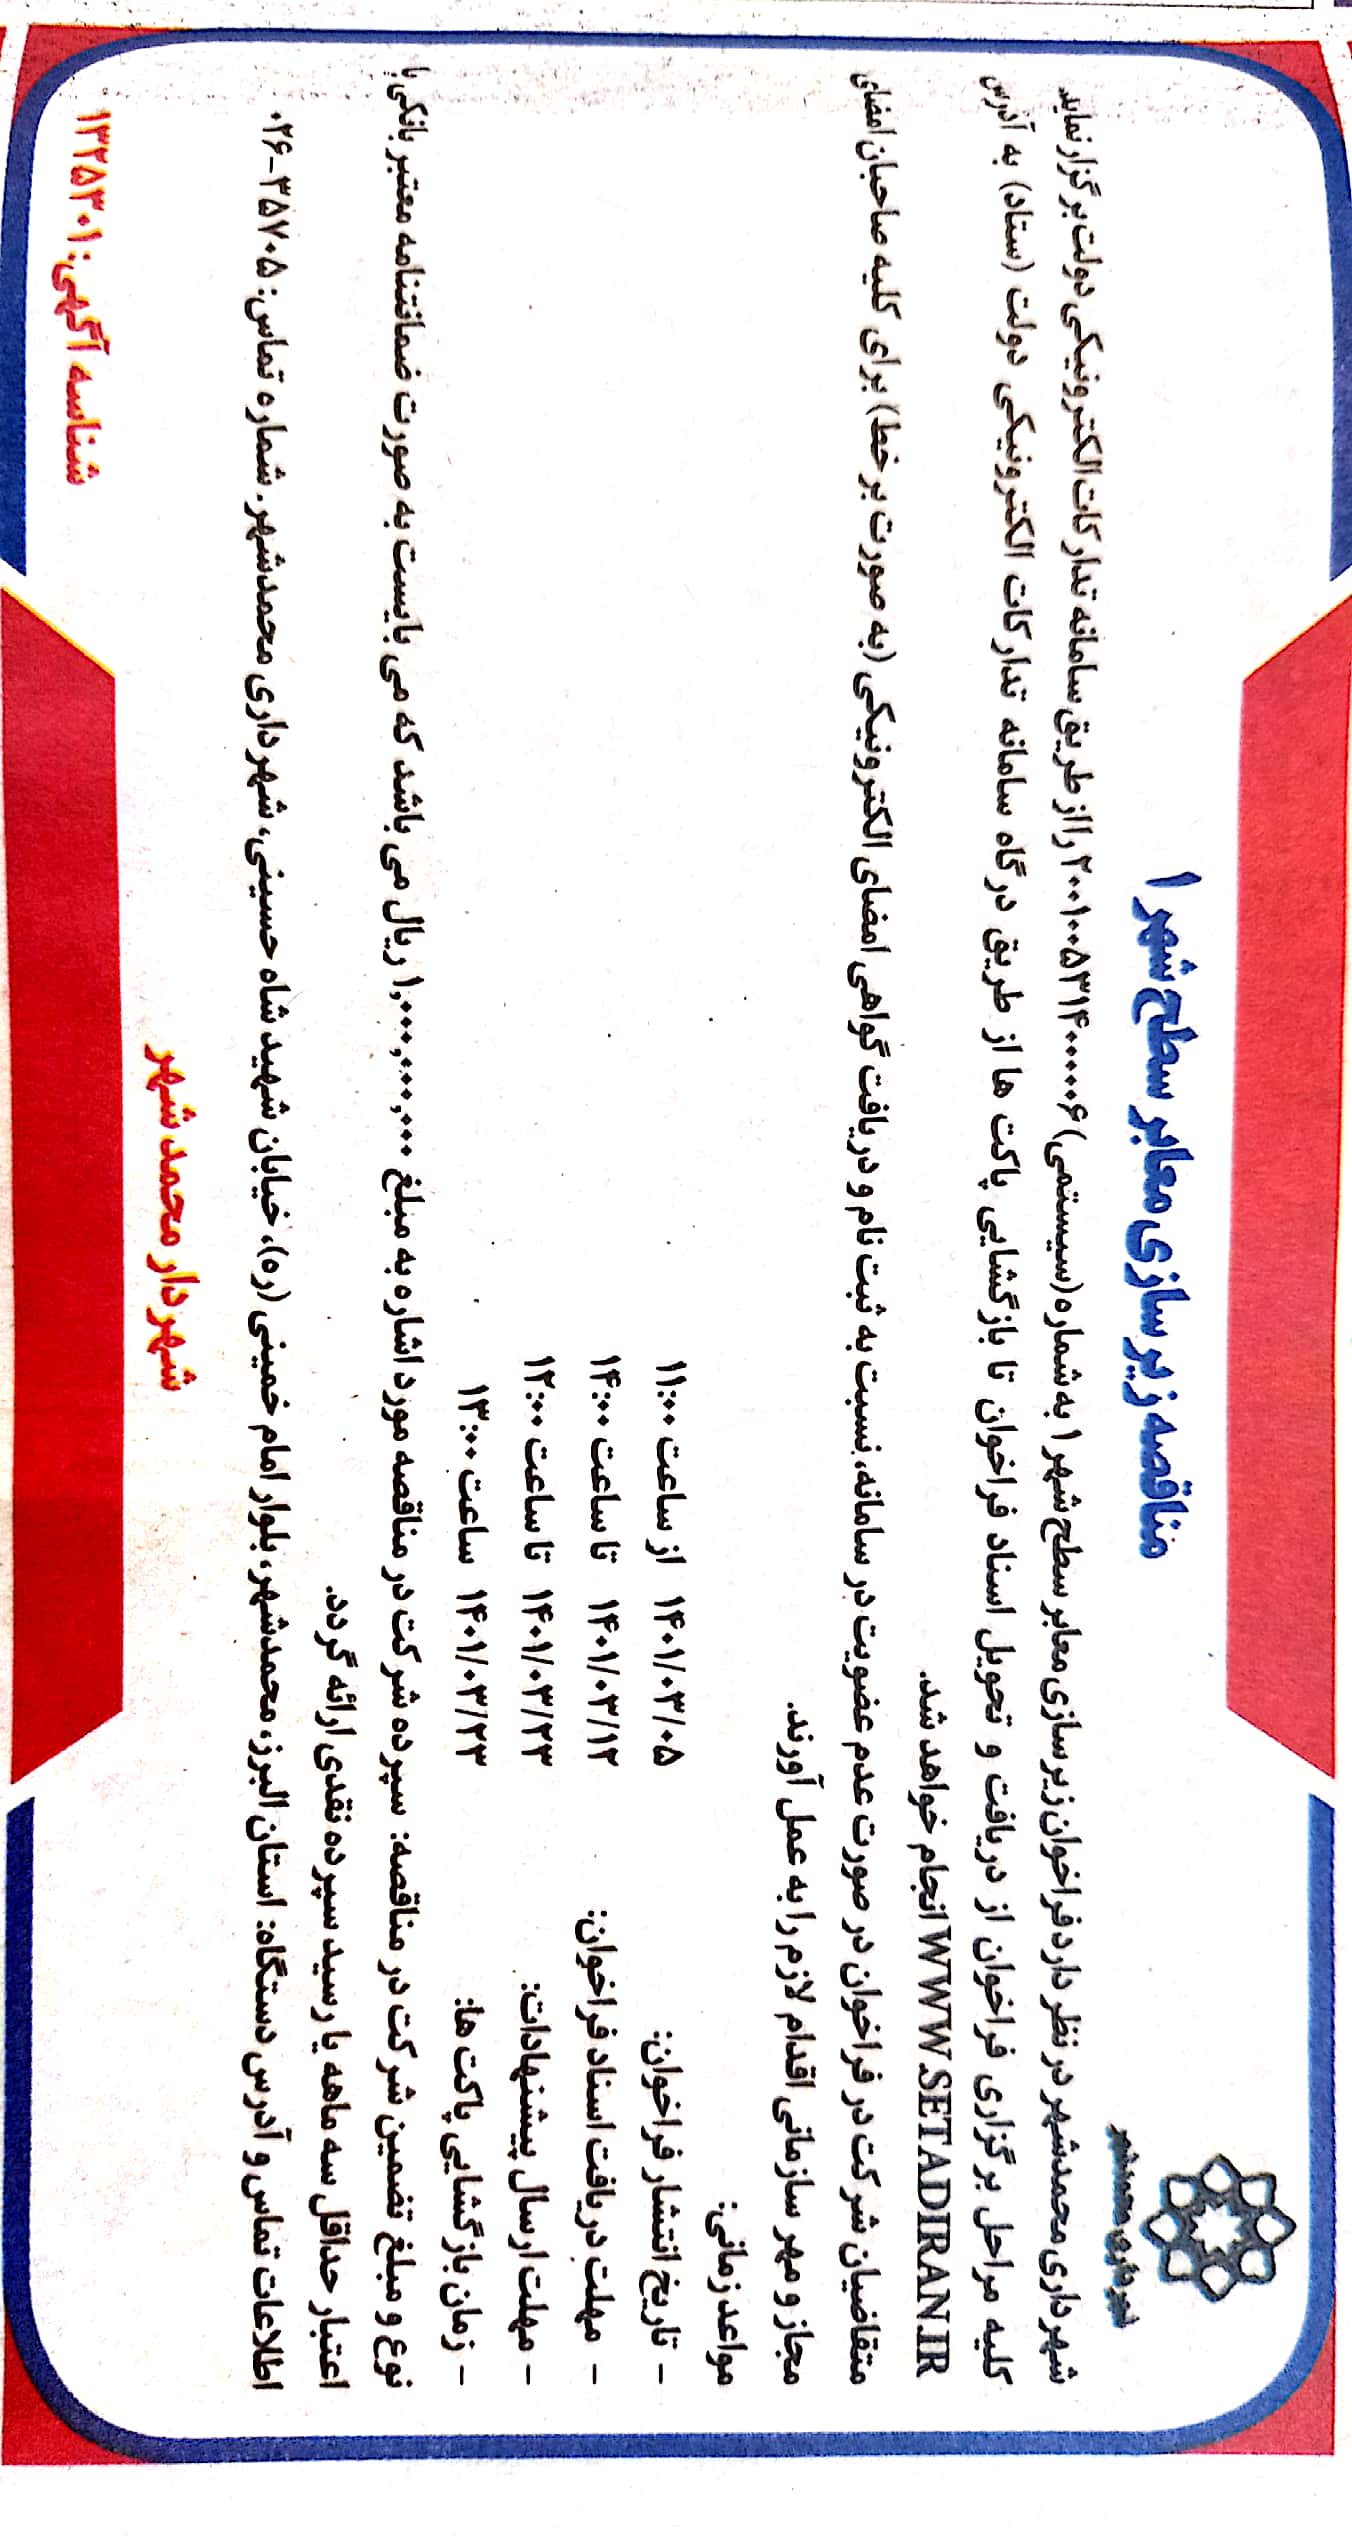 شهرداری محمدشهر
مناقصه زیرسازی معابر سطح شهر ۱
شهرداری محمدشهر در نظر دارد فراخوان زیرسازی معابر سطح شهر ۱ به شماره (سیستمی) ۲۰۰۱۰۰۵۳۱۴۰۰۰۰۰۶ را از طریق سامانه تدارکات الکترونیکی دولت برگزار نماید.
کلیه مراحل برگزاری فراخوان از دریافت و تحویل اسناد فراخوان تا بازگشایی پاکت ها از طریق درگاه سامانه تدارکات الکترونیکی دولت (ستاد) به آدرس
WWW.SETADIRAN.IR انجام خواهد شد.
متقاضیان شرکت در فراخوان در صورت عدم عضویت در سامانه، نسبت به ثبت نام و دریافت گواهی امضای الکترونیکی (به صورت بر خط) برای کلیه صاحبان امضای
مجاز و مهر سازمانی اقدام لازم را به عمل آورند.
مواعد زمانی:
- تاریخ انتشار فراخوان: ۱۴۰۱/۰۳/۰۵ از ساعت ۱۱:۰۰
- مهلت دریافت اسناد فراخوان: ۱۴۰۱/۰۳/۱۲ تا ساعت ۱۴:۰۰
- مهلت ارسال پیشنهادات: ۱۴۰۱/۰۳/۲۳ تا ساعت ۱۲:۰۰
- زمان بازگشایی پاکت ها: ۱۴۰۱/۰۳/۲۳ ساعت ۱۳:۰۰
نوع و مبلغ تضمین شرکت در مناقصه: سپرده شرکت در مناقصه مورد اشاره به مبلغ ۱,۰۰۰,۰۰۰,۰۰۰ ریال می باشد که می بایست به صورت ضمانتنامه معتبر بانکی با
اعتبار حداقل سه ماهه یا رسید سپرده نقدی ارائه گردد.
اطلاعات تماس و آدرس دستگاه: استان البرز، محمدشهر، بلوار امام خمینی (ره)، خیابان شهید شاه حسینی، شهرداری محمدشهر. شماره تماس: ۳۵۷۰۵-۰۲۶
شهردار محمدشهر
شناسه آگهی: ۱۳۲۵۳۰۱